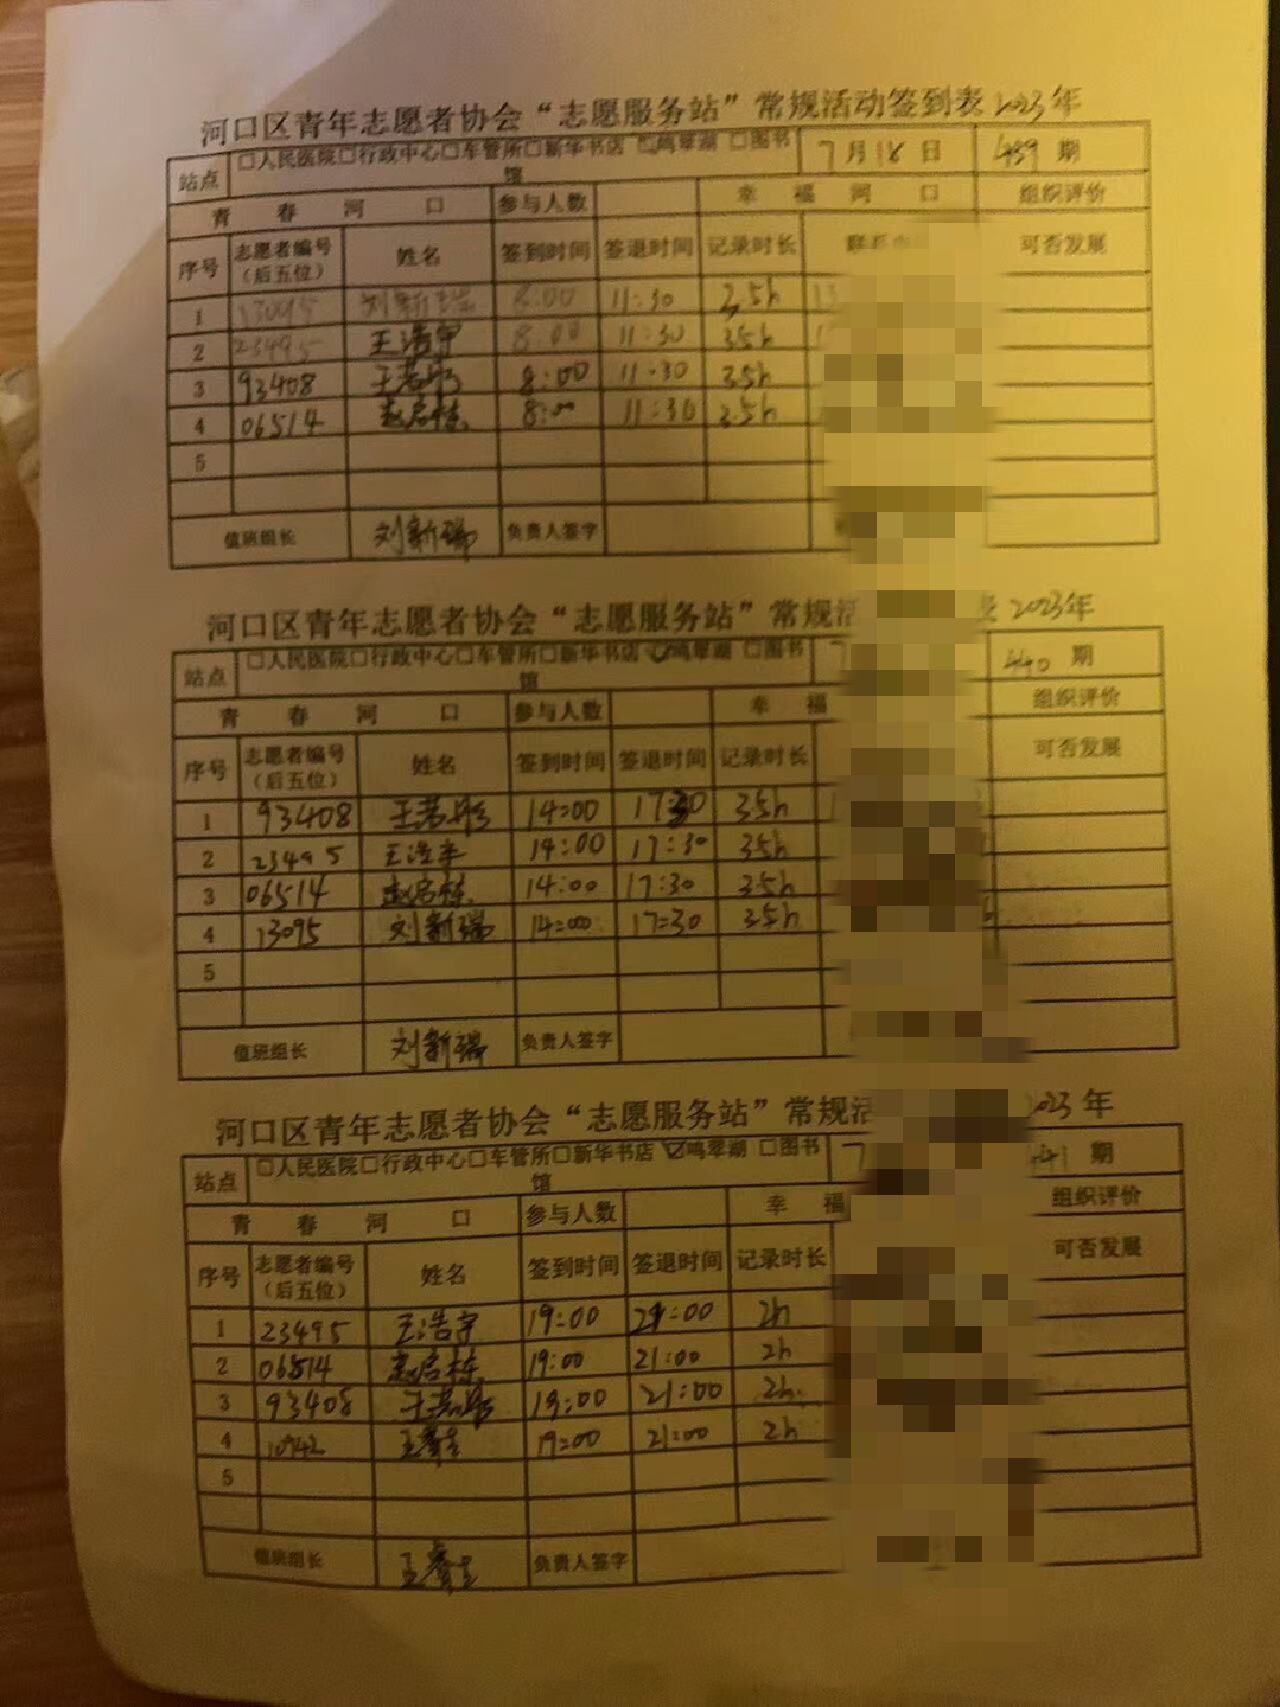 河口区青年志愿者协会“志愿服务站”常规活动签到表 2023年
站点 □人民医院□行政中心□车管所□新华书店 ☑鸣翠湖 □图书馆 7月18日 439 期
青春河口 参与人数 幸福河口 组织评价
序号 志愿者编号（后五位） 姓名 签到时间 签退时间 记录时长 可否发展
1 13095 刘新瑞 8:00 11:30 3.5h
2 23495 王浩宇 8:00 11:30 3.5h
3 93408 8:00 11:30 3.5h
4 06514 赵启栋 8:00 11:30 3.5h
5
值班组长 刘新瑞 负责人签字
河口区青年志愿者协会“志愿服务站”常规活 表 2023年
站点 □人民医院□行政中心□车管所□新华书店 ☑鸣翠湖 □图书馆 7 440 期
青春河口 参与人数 幸福 组织评价
序号 志愿者编号（后五位） 姓名 签到时间 签退时间 记录时长 可否发展
1 93408 14:00 17:30 3.5h
2 23495 王浩宇 14:00 17:30 3.5h
3 06514 赵启栋 14:00 17:30 3.5h
4 13095 刘新瑞 14:00 17:30 3.5h
5
值班组长 刘新瑞 负责人签字
河口区青年志愿者协会“志愿服务站”常规活 2023年
站点 □人民医院□行政中心□车管所□新华书店 ☑鸣翠湖 □图书馆 7 41 期
青春河口 参与人数 幸福 组织评价
序号 志愿者编号（后五位） 姓名 签到时间 签退时间 记录时长 可否发展
1 23495 王浩宇 19:00 21:00 2h
2 06514 赵启栋 19:00 21:00 2h
3 93408 19:00 21:00 2h
4 10942 19:00 21:00 2h
5
值班组长 负责人签字